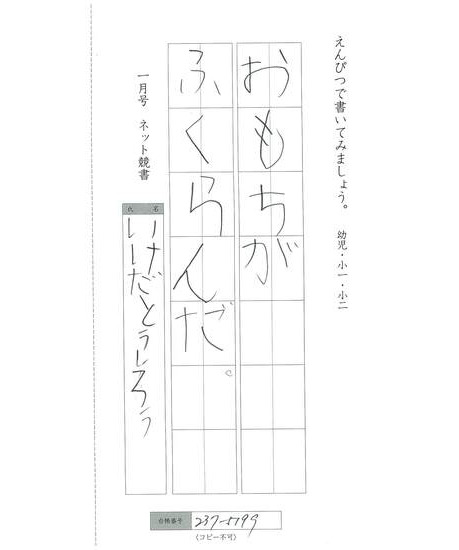 えんぴつで書いてみましょう。　幼児・小一・小二
おもちが
ふくらんだ。
一月号　ネット競書
氏名
いけだとうしろう
会員番号 237-5799
〈コピー不可〉